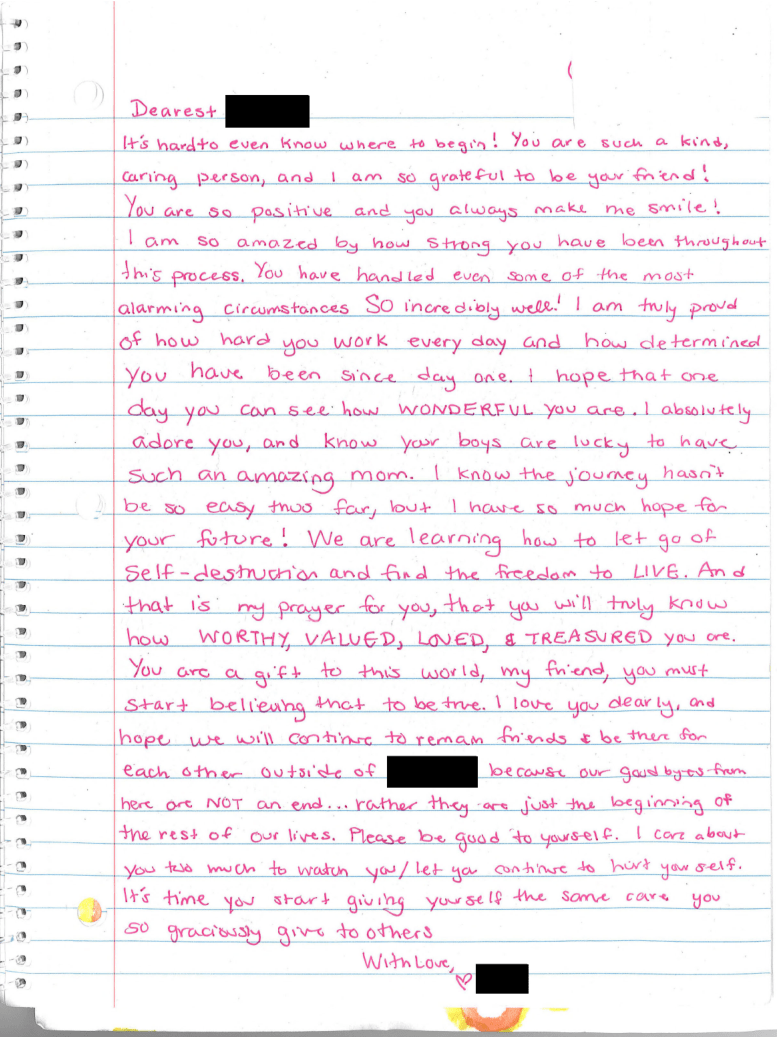 Dearest
It's hard to even know where to begin! You are such a kind,
caring person, and I am so grateful to be your friend!
You are so positive and you always make me smile!
I am so amazed by how strong you have been throughout
this process. You have handled even some of the most
alarming circumstances SO incredibly well! I am truly proud
of how hard you work every day and how determined
you have been since day one. I hope that one
day you can see how WONDERFUL you are. I absolutely
adore you, and know your boys are lucky to have
such an amazing mom. I know the journey hasn't
be so easy thus far, but I have so much hope for
your future! We are learning how to let go of
self-destruction and find the freedom to LIVE. And
that is my prayer for you, that you will truly know
how WORTHY, VALUED, LOVED, & TREASURED you are.
You are a gift to this world, my friend, you must
start believing that to be true. I love you dearly, and
hope we will continue to remain friends & be there for
each other outside of because our goodbyes from
here are NOT an end... rather they are just the beginning of
the rest of our lives. Please be good to yourself. I care about
you too much to watch you/let you continue to hurt yourself.
It's time you start giving yourself the same care you
so graciously give to others
With Love,